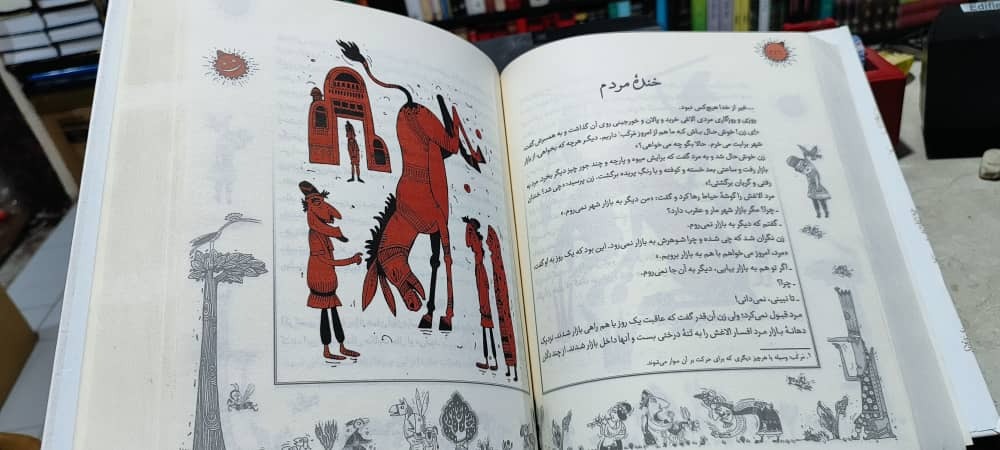 Edifie
خندهٔ مردم
...غیر از خدا هیچ‌کس نبود.
روزی و روزگاری مردی الاغی خرید و پالان و خورجینی روی آن گذاشت و به همسرش گفت:
«ای زن! خوش‌حال باش که ما هم از امروز مَرکَب۱ داریم. دیگر هرچه که بخواهی، از بازار
شهر برایت می‌خرم. حالا بگو چه می‌خواهی؟»
زن خوش‌حال شد و به مرد گفت که برایش میوه و پارچه و چند جور چیز دیگر بخرد. مرد به
بازار رفت و ساعتی بعد خسته و کوفته و با رنگِ پریده برگشت. زن پرسید: «چی شد؟ خندان
رفتی و گریان برگشتی!»
مرد الاغش را گوشهٔ حیاط رها کرد و گفت: «من دیگر به بازار شهر نمی‌روم.»
ـ چرا؟ مگر بازار شهر مار و عقرب دارد؟
ـ گفتم که دیگر به بازار نمی‌روم.
زن نگران شد که چی شده و چرا شوهرش به بازار نمی‌رود. این بود که یک روز به او گفت:
«مرد، امروز می‌خواهم با هم به بازار برویم.»
ـ اگر تو هم به بازار بیایی، دیگر به آن جا نمی‌روم.
ـ چرا؟
ـ تا نبینی، نمی‌دانی!
مرد قبول نمی‌کرد؛ ولی زن آن‌قدر گفت که عاقبت یک روز با هم راهی بازار شدند. نزدیک
دهانهٔ بازار مرد افسار الاغش را به تنهٔ درختی بست و آنها داخل بازار شدند. از چند دکان
۱. مَرکَب: وسیله یا هرچیز دیگری که برای حرکت بر آن سوار می‌شوند.